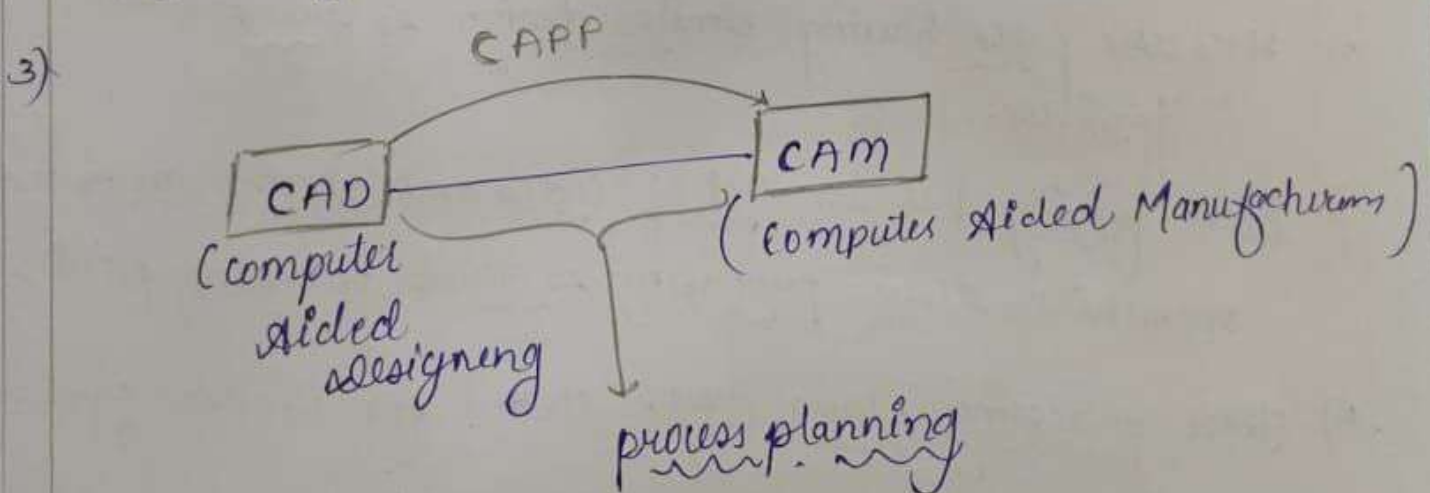 3)
CAPP
CAD
CAM
(computer
Aided
Designing
(Computer Aided Manufacturing)
process planning